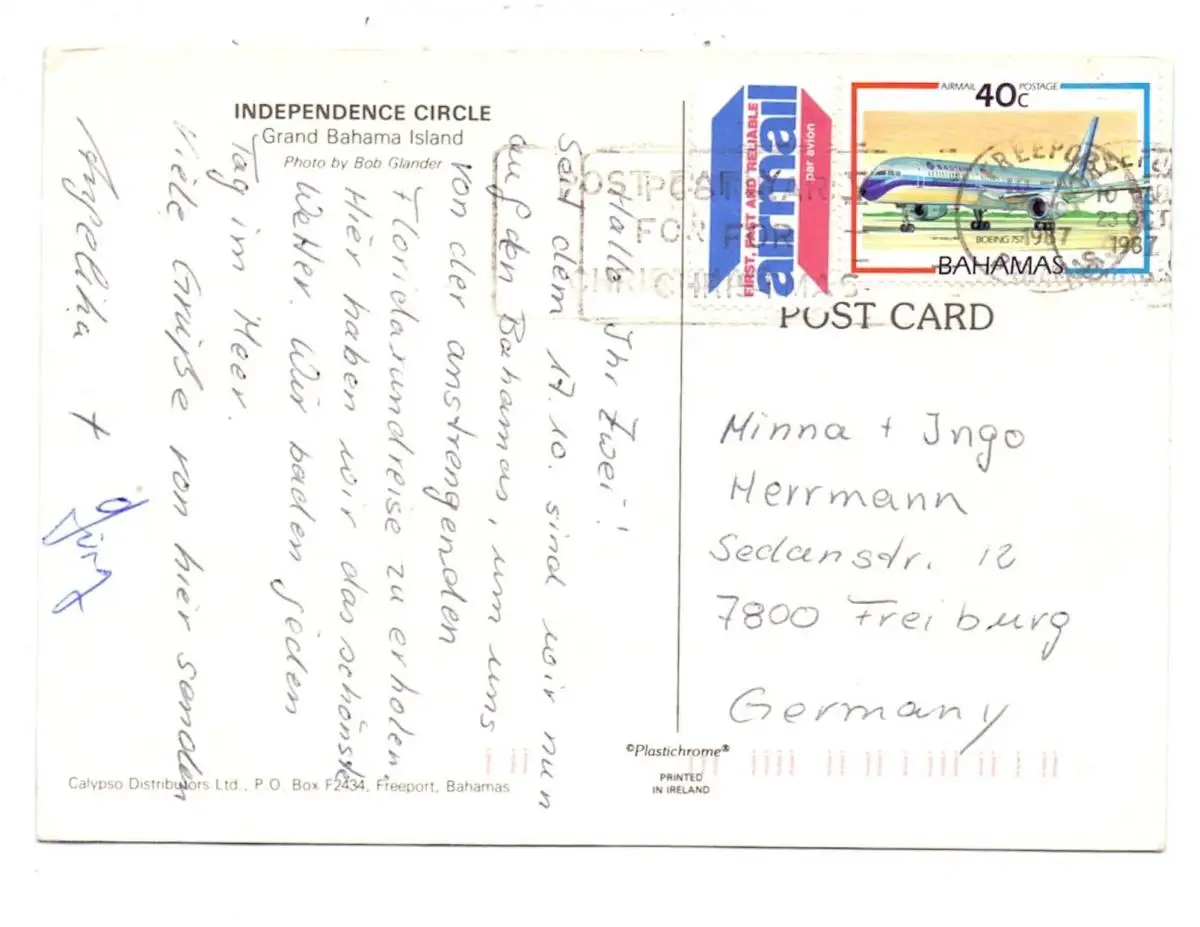 INDEPENDENCE CIRCLE
Grand Bahama Island
Photo by Bob Glander
Hallo Ihr Zwei!
Seit dem 17.10. sind wir nun
auf den Bahamas, um uns
von der anstrengenden
Floridarundreise zu erholen.
Hier haben wir das schönste
Wetter. Wir baden jeden
Tag im Meer.
Viele Grüße von hier senden
Angelika +
Jürg
Calypso Distributors Ltd., P.O. Box F2434, Freeport, Bahamas
FIRST, FAST AND RELIABLE
airmail
par avion
AIRMAIL 40c POSTAGE
BOEING 757
BAHAMAS
FREEPORT
10
23 OCT
1987
1987
POST EARLY
FOR
CHRISTMAS
POST CARD
Minna + Ingo
Herrmann
Sedanstr. 12
7800 Freiburg
Germany
©Plastichrome®
PRINTED
IN IRELAND